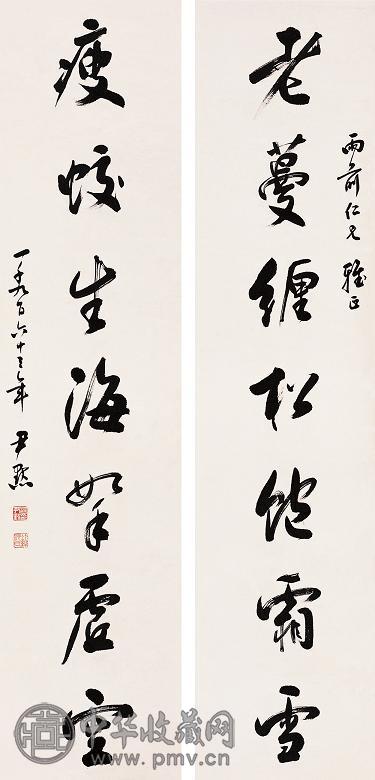 雨前仁兄雅正
老蔓缠松饱霜雪
瘦蛟生海挐虚空
一千九百六十三年 尹默
中华收藏网
www.pmv.cn